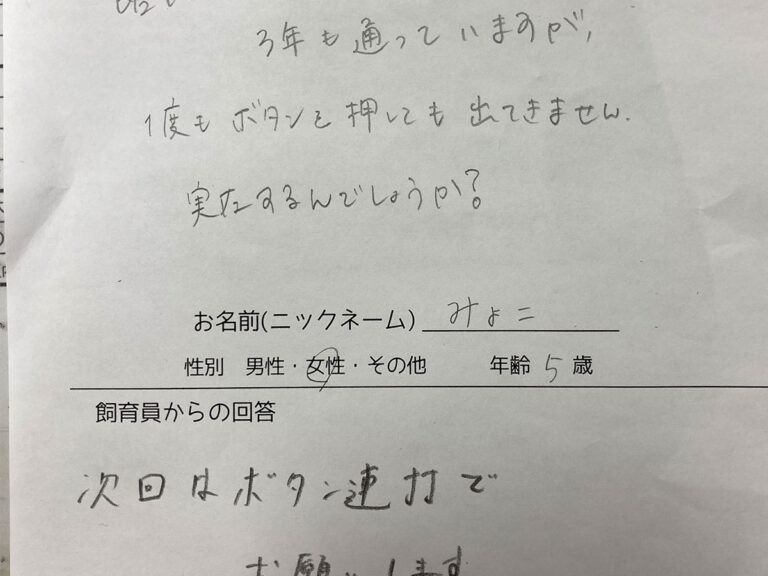 3年も通っていますが、
1度もボタンを押しても出てきません.
実在するんでしょうか?
お名前(ニックネーム) みよこ
性別 男性・女性・その他 年齢 5 歳
飼育員からの回答
次回はボタン連打で
お願いします